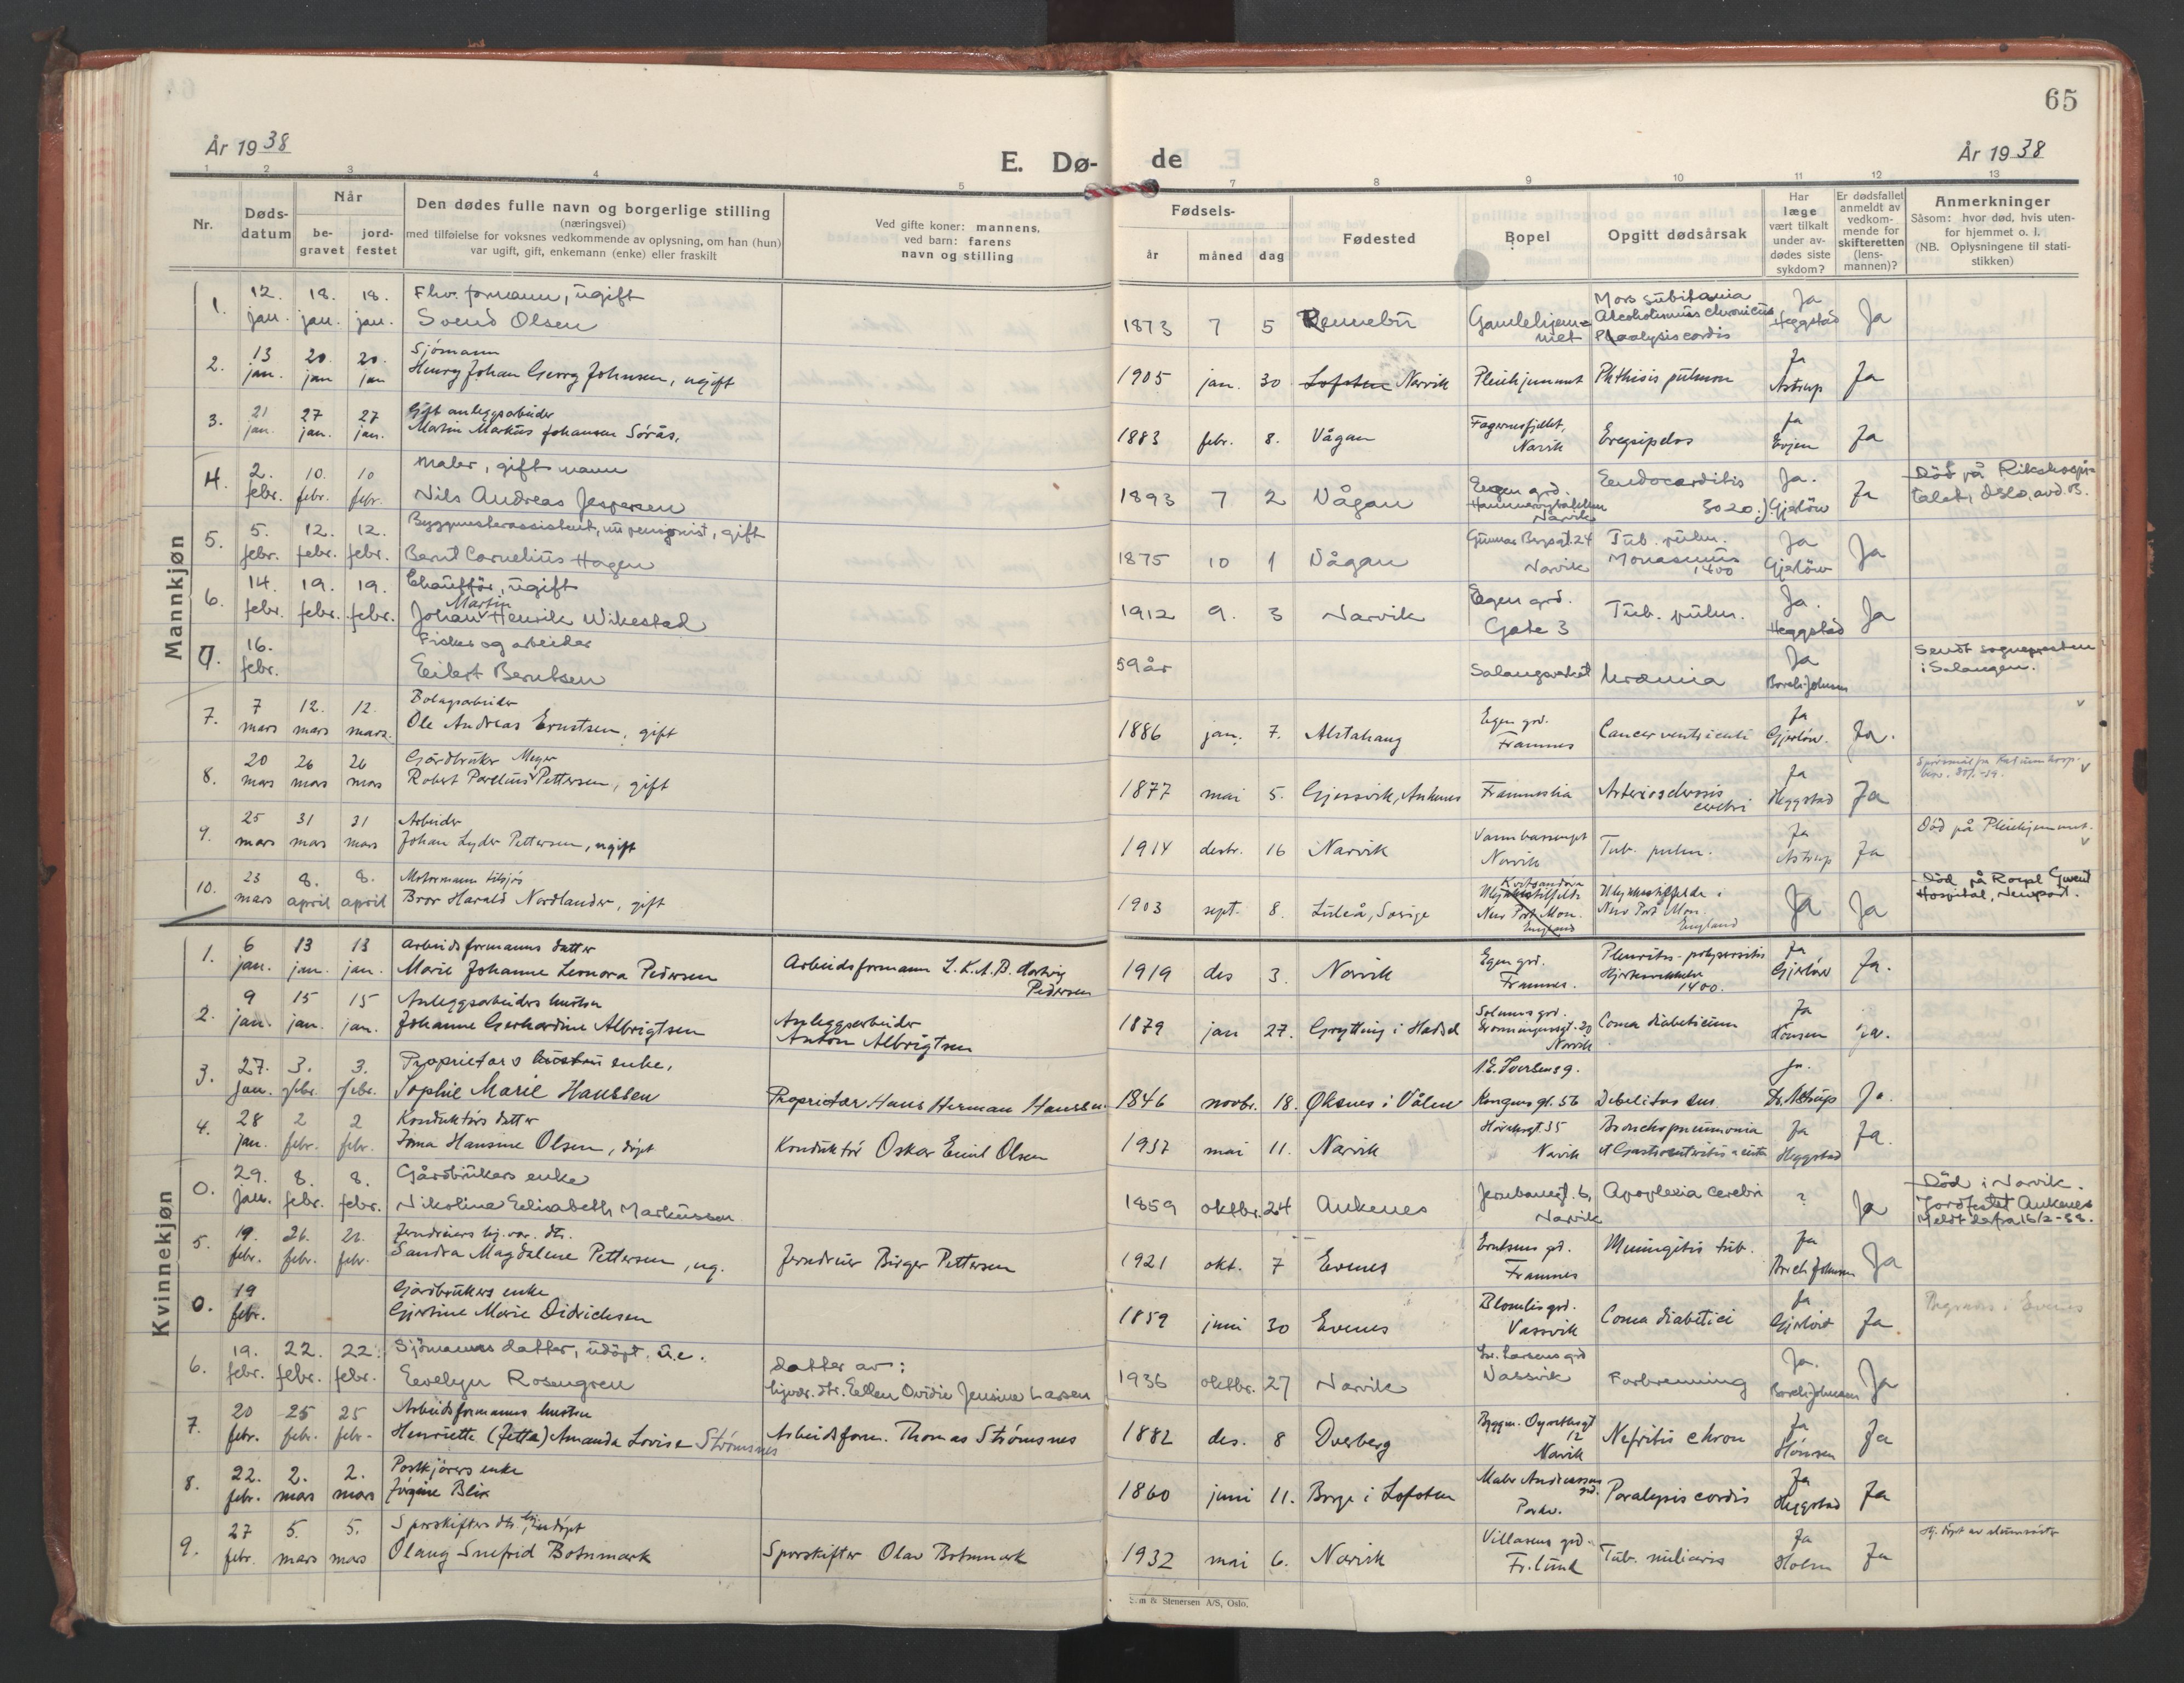 65
År 1938
E. Dø- de
År 1938
1 2 3 4 5 7 8 9 10 11 12 13
Nr.
Døds-
datum
Når
be-
gravet
jord-
festet
Den dødes fulle navn og borgerlige stilling
(næringsvei)
med tilføielse for voksnes vedkommende av oplysning, om han (hun)
var ugift, gift, enkemann (enke) eller fraskilt
Ved gifte koner: mannens,
ved barn: farens
navn og stilling
Fødsels-
år måned dag
Fødested
Bopel
Opgitt dødsårsak
Har
læge
vært tilkalt
under av-
dødes siste
sykdom?
Er dødsfallet
anmeldt av
vedkom-
mende for
skifteretten
(lens-
mannen)?
Anmerkninger
Såsom: hvor død, hvis uten-
for hjemmet o. l.
(NB. Oplysningene til stati-
stikken)
Mannkjøn
1. 12. jan. 18. jan. 18. jan. Fhv. formann, ugift
Svend Olsen
1873 7 5 Rennebu Gamlehjem-
met
Mors subitania
Alcoholismus chronicus
Paralysis cordis
Ja
Heggstad
Ja
2. 13 jan. 20. jan 20. jan Sjømann
Henry Johan Georg Johnsen, ugift
1905 jan. 30 Lofoten Narvik Pleiehjemmet Phthisis pulmon
Ja
Astrup
Ja
3. 21 jan. 27 jan. 27 jan. Gift anleggsarbeider
Martin Markus Johansen Sørås,
1883 febr. 8. Vågan Fagernesfjellet,
Narvik
Eresipelas
Ja
Evjen
Ja
4. 2. febr. 10. febr. 10 febr. Maler, gift mann
Nils Andreas Jespersen
1893 7 2 Vågan Egen grd.
Narvik
Endocarditis
3020.)
Ja.
Gjerløw
Ja
Død på Rikshospi-
talet, Oslo, avd. B.
5. 5. febr. 12. febr. 12. febr. Byggmesterassistent, nu pensjonist, gift
Bernt Cornelius Hagen
1875 10 1 Vågan Gunnar Bergsgt. 24
Narvik
Tub. pulm.
1400
Ja
Gjerløw
Ja
6. 14. febr. 19. febr. 19. febr. Chauffør, ugift
Martin
Johan Henrik Wikestad
1912 9. 3 Narvik Egen grd.
Gate 3
Tub. pulm.
Ja.
Heggstad
Ja
0. 16. febr. Fisker og arbeider
Eilert Berntsen
59 år Salangsverket Uræmia
Ja
Borch-Johnsen
Sendt sognepresten
i Salangen.
7. 7 mars 12. mars 12. mars. Bolagsarbeider
Ole Andreas Ernstsen, gift
1886 jan. 7. Alstahaug Egen grd.
Framnes
Cancer ventriculi
Ja
Gjerløw.
Ja.
8. 20 mars 26 mars 26 mars Gårdbruker Meyer
Robert Parelius Pettersen, gift
1877 mai 5. Gjersvik, Ankenes Framneslia Arteriosclerosis
cerebri
Ja
Heggstad
Ja
9. 25 mars 31 mars 31 mars Arbeider
Johan Lyder Pettersen, ugift
1914 desbr. 16 Narvik Vannbassenget
Narvik
Tub. pulm.
Ja
Astrup
Ja
Død på Pleiehjemmet.
10. 23 mars 8. april 8. april Motormann tilsjøs
Bror Harald Nordlander, gift
1903 sept. 8. Luleå, Sverige Kvitsandøra
New Port Mon.
England
Ulykkestilfelde i
New Port Mon.
England
Ja Ja
Død på Royal Gwent
Hospital, Newport.
Kvinnekjøn
1. 6 jan. 13 jan. 13 jan. Arbeidsformanns datter
Marie Johanne Leonora Pedersen
Arbeidsformann L.K.A.B. Hartvig
Pedersen
1919 des 3. Narvik Egen grd.
Framnes.
Pleuritis - polyserositis
1400.
Ja
Gjerløw
Ja.
2. 9 jan. 15 jan. 15 jan. Anleggsarbeiders hustru
Johanne Gerhardine Albrigtsen
Anleggsarbeider
Anton Albrigtsen
1879 jan 27. Grytting i Hadsel Solums grd.
Dronningensgt. 20
Narvik
Coma diabeticum
Ja
Hønsen
Ja.
3. 27. jan. 3. febr. 3. febr. Proprietærs hustru enke,
Sophie Marie Hanssen
Proprietær Hans Herman Hanssen.
1846 novbr. 18. Øksnes i Vålen N.E. Iversens g.
Kongens gt. 56
Debilitas sen.
Ja.
Dr. Astrup
Ja.
4. 28 jan. 2 febr. 2 febr. Konduktørs datter
Irma Hansine Olsen, døpt
Konduktør Oskar Emil Olsen
1937 mai 11. Narvik Håreksgt 35
Narvik
Bronchopneumonia
et Gastroenteritis acuta
Ja
Heggstad
Ja.
0. 29. jan. 8. febr. 8. febr. Gårdbrukers enke
Nikoline Elisabeth Markussen
1859 oktbr. 24 Ankenes Jernbanegt. 6,
Narvik
Apoplexia cerebri ? Ja
Død i Narvik.
Jordfestet Ankenes
Meldt derfra 15/2-38.
5. 19. febr. 26. febr. 26. febr. Jerndreiers hj.vær. dtr.
Sandra Magdalene Pettersen, ug.
Jerndreier Birger Pettersen
1921 okt. 7 Evenes Erntsens grd.
Framnes
Meningitis tub.
Ja
Borch Johnsen
Ja
0. 19 febr. Gårdbrukers enke
Gjertine Marie Didrichsen
1859 juni 30 Evenes Blomlis grd.
Vassvik
Coma diabetici
Ja
Gjerløw
Ja
Begraves i Evenes
6. 19. febr. 22. febr. 22. febr. Sjømanns datter, udøpt. u.e.
Eevelyn Rosengren
Datter av:
hjvær. dtr. Ellen Ovidie Jensine Larsen
1936 oktbr. 27 Narvik Kr. Larsens grd
Vassvik
Forbrenning
Ja.
Borch-Johnsen
Ja
7. 20 febr. 25 febr. 25 febr. Arbeidsformanns hustru
Henriette (Jetta) Amanda Lovise Strømsnes
Arbeidsform. Thomas Strømsnes
1882 des. 8 Dverberg
12
Narvik
Nefritis chron
Ja
Hønsen
Ja
8. 22. febr. 2. mars 2. mars Postkjørers enke
Jørgine Blix
1860 juni 11. Borge i Lofoten Maler Andreassens
grd.
Parkv.
Paralysis cordis
Ja
Heggstad
Ja
9. 27 febr. 5. mars 5. mars Sporskifters dtr. hj.døpt
Olaug Snefrid Botnmark
Sporskifter Olav Botnmark
1932 mai 6. Narvik Villasens grd.
Fr.lund
Tub. miliaris
Ja
Holm
Ja
Sem & Stenersen A/S, Oslo.